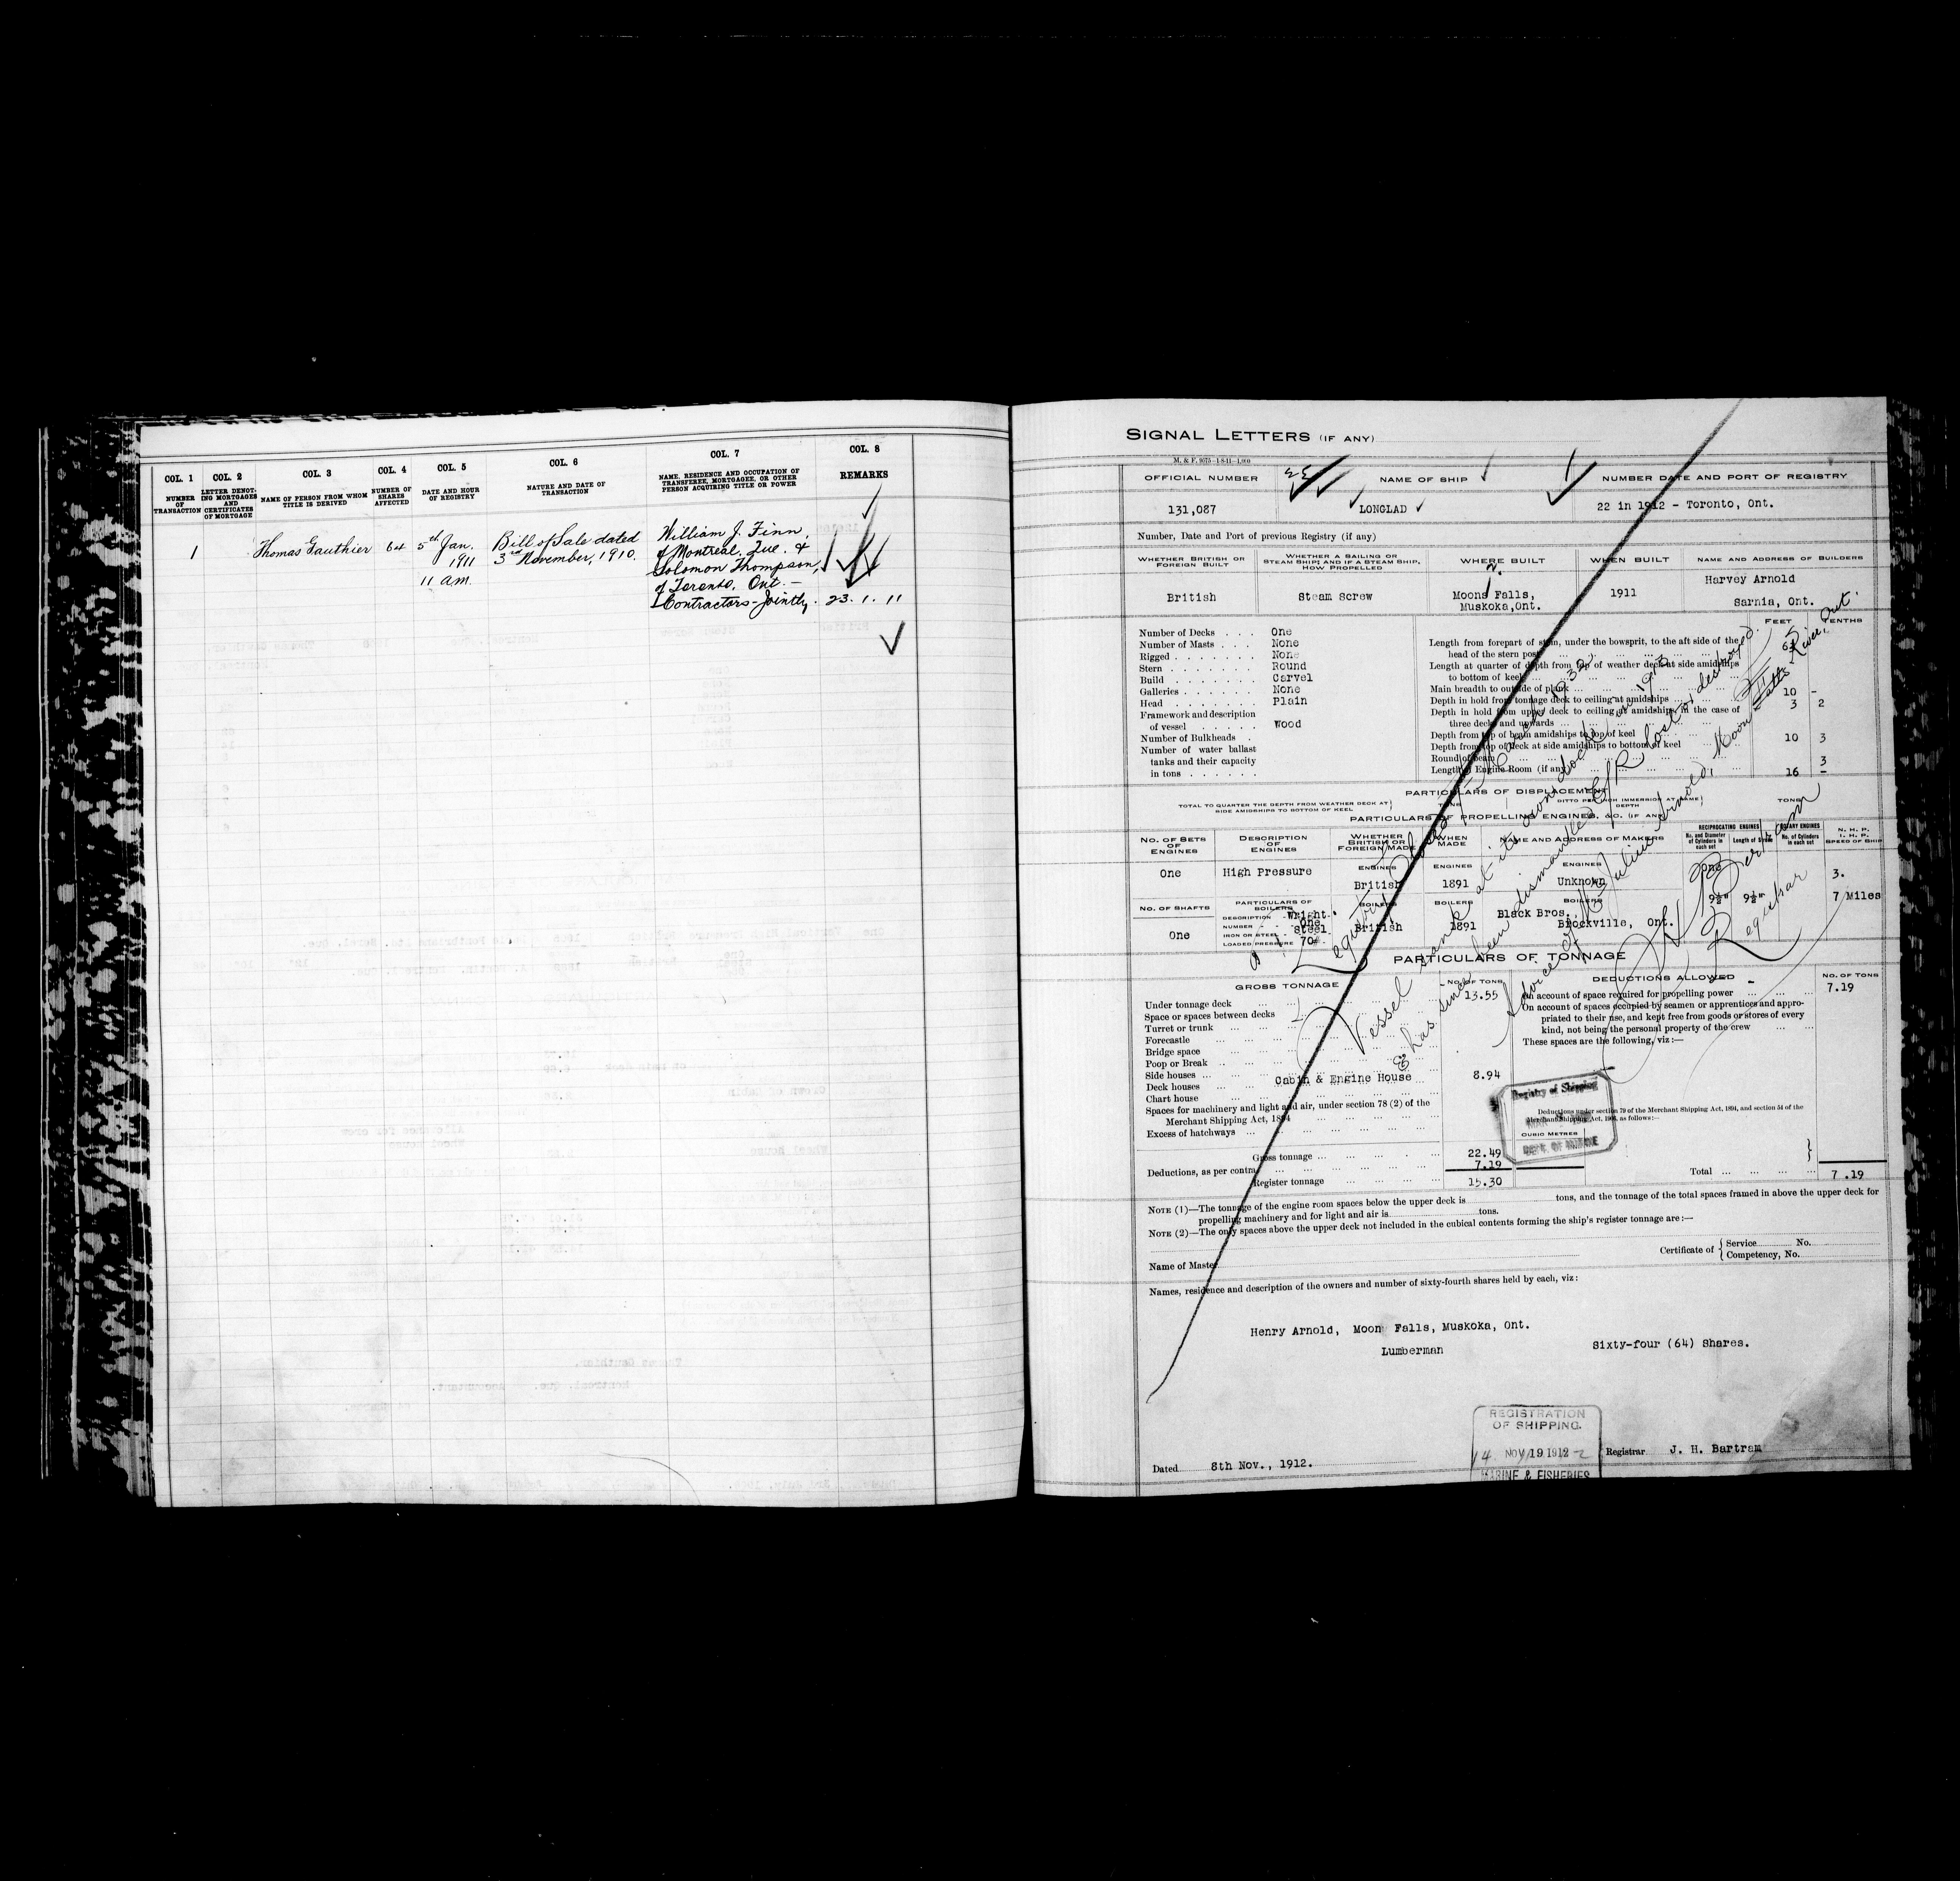 COL. 1
COL. 2
COL. 3
COL. 4
COL. 5
COL. 6
COL. 7
COL. 8
NUMBER OF TRANSACTION
LETTER DENOTING MORTGAGES AND CERTIFICATES OF MORTGAGE
NAME OF PERSON FROM WHOM TITLE IS DERIVED
NUMBER OF SHARES AFFECTED
DATE AND HOUR OF REGISTRY
NATURE AND DATE OF TRANSACTION
NAME, RESIDENCE AND OCCUPATION OF TRANSFEREE, MORTGAGEE, OR OTHER PERSON ACQUIRING TITLE OR POWER
REMARKS
1
Thomas Gauthier
64
5th Jan.
1911
11 a.m.
Bill of Sale dated
3rd November, 1910.
William J. Finn,
of Montreal, Que. &
Solomon Thompson,
of Toronto, Ont. —
Contractors - Jointly.
23. 1. 11
SIGNAL LETTERS (IF ANY)
M. & F. 9075—1-8-11—1,000
OFFICIAL NUMBER
NAME OF SHIP
NUMBER DATE AND PORT OF REGISTRY
131,087
LONGLAD
22 in 1912 - Toronto, Ont.
Number, Date and Port of previous Registry (if any)
WHETHER BRITISH OR FOREIGN BUILT
WHETHER A SAILING OR STEAM SHIP; AND IF A STEAM SHIP, HOW PROPELLED
WHERE BUILT
WHEN BUILT
NAME AND ADDRESS OF BUILDERS
British
Steam Screw
Moons Falls,
Muskoka, Ont.
1911
Harvey Arnold
Sarnia, Ont.
FEET
TENTHS
Number of Decks . . . One
Number of Masts . . . None
Rigged . . . . . . . None
Stern . . . . . . . Round
Build . . . . . . . Carvel
Galleries . . . . . . None
Head . . . . . . . Plain
Framework and description
of vessel . . . . . . Wood
Number of Bulkheads .
Number of water ballast
tanks and their capacity
in tons . . . . . .
Length from forepart of stem, under the bowsprit, to the aft side of the
head of the stern post
Length at quarter of depth from top of weather deck at side amidships
to bottom of keel
Main breadth to outside of plank ... 10 -
Depth in hold from tonnage deck to ceiling at amidships ... 3 2
Depth in hold from upper deck to ceiling at amidships, in the case of
three decks and upwards
Depth from top of beam amidships to top of keel
Depth from top of deck at side amidships to bottom of keel
10 3
Round of beam 3
Length of Engine Room (if any) 16 -
PARTICULARS OF DISPLACEMENT
TOTAL TO QUARTER THE DEPTH FROM WEATHER DECK AT SIDE AMIDSHIPS TO BOTTOM OF KEEL
TONS
DITTO PER INCH IMMERSION AT SAME DEPTH
TONS
PARTICULARS OF PROPELLING ENGINES, &C. (IF ANY)
NO. OF SETS OF ENGINES
DESCRIPTION OF ENGINES
WHETHER BRITISH OR FOREIGN MADE
WHEN MADE
NAME AND ADDRESS OF MAKERS
RECIPROCATING ENGINES
No. and Diameter of Cylinders in each set
Length of Stroke
ROTARY ENGINES
No. of Cylinders in each set
N. H. P.
I. H. P.
SPEED OF SHIP
One
High Pressure
ENGINES
British
ENGINES
1891
ENGINES
Unknown
One
9½"
9½"
3.
7 Miles
NO. OF SHAFTS
One
PARTICULARS OF BOILERS
DESCRIPTION Wright.
NUMBER One
IRON OR STEEL Steel
LOADED PRESSURE 70
BOILERS
British
BOILERS
1891
BOILERS
Black Bros.,
Brockville, Ont.
PARTICULARS OF TONNAGE
GROSS TONNAGE
NO. OF TONS
DEDUCTIONS ALLOWED
NO. OF TONS
Under tonnage deck 13.55
Space or spaces between decks
Turret or trunk
Forecastle
Bridge space
Poop or Break
Side houses
Deck houses Cabin & Engine House 8.94
Chart house
Spaces for machinery and light and air, under section 78 (2) of the
Merchant Shipping Act, 1894
Excess of hatchways
Gross tonnage 22.49
Deductions, as per contra 7.19
Register tonnage 15.30
On account of space required for propelling power 7.19
On account of spaces occupied by seamen or apprentices and appro-
priated to their use, and kept free from goods or stores of every
kind, not being the personal property of the crew
These spaces are the following, viz :—
Registry of Shipping
Deductions under section 79 of the Merchant Shipping Act, 1894, and section 54 of the
Merchant Shipping Act, 1906, as follows:—
CUBIC METRES
DEPT. OF MARINE
Total 7.19
NOTE (1)—The tonnage of the engine room spaces below the upper deck is tons, and the tonnage of the total spaces framed in above the upper deck for
propelling machinery and for light and air is tons.
NOTE (2)—The only spaces above the upper deck not included in the cubical contents forming the ship's register tonnage are :—
Name of Master
Certificate of { Service No.
Competency, No.
Names, residence and description of the owners and number of sixty-fourth shares held by each, viz :
Henry Arnold, Moon Falls, Muskoka, Ont.
Lumberman
Sixty-four (64) Shares.
Dated 8th Nov., 1912.
REGISTRATION
OF SHIPPING.
14 NOV 19 1912
MARINE & FISHERIES
Registrar J. H. Bartram
Registry closed March 1932
Vessel sank at its own dock in 1913
& has since been dismantled &/or lost or destroyed.
Advice of Julius Arnold, Moon Falls River, Ont.
Bertram
Registrar